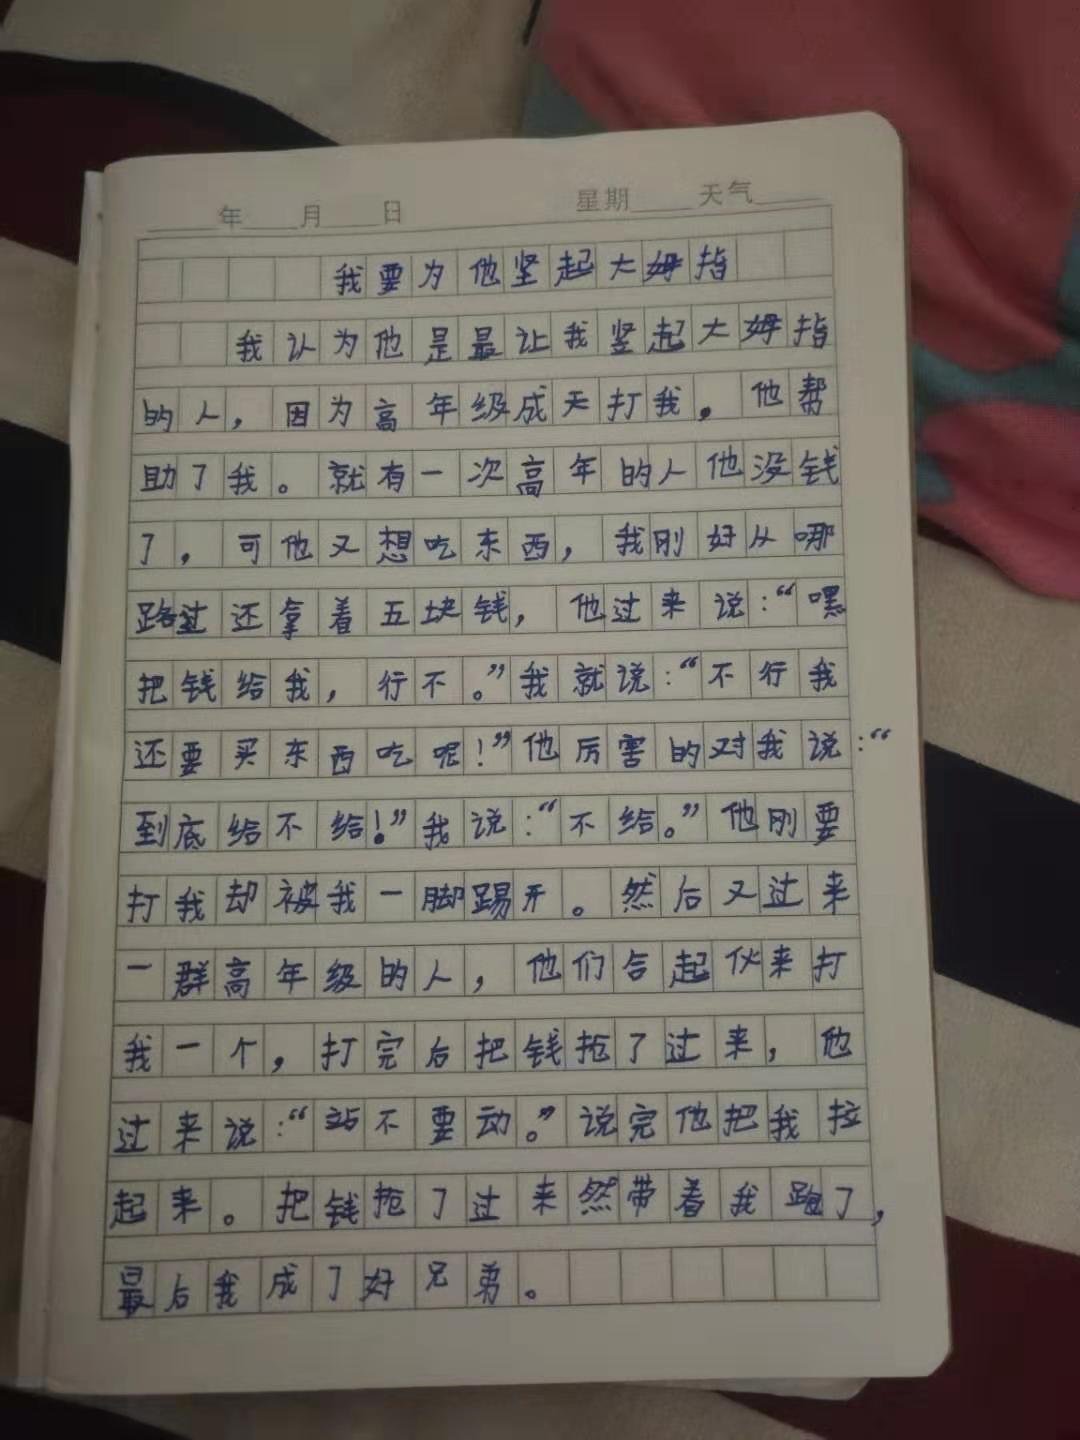 年 月 日 星期 天气
我要为他坚起大姆指
我认为他是最让我竖起大姆指
的人，因为高年级成天打我，他帮
助了我。就有一次高年的人他没钱
了，可他又想吃东西，我刚好从哪
路过还拿着五块钱，他过来说：“嘿
把钱给我，行不。”我就说：“不行我
还要买东西吃呢！”他厉害的对我说：“
到底给不给！”我说：“不给。”他刚要
打我却被我一脚踢开。然后又过来
一群高年级的人，他们合起伙来打
我一个，打完后把钱抢了过来，他
过来说：“站不要动。”说完他把我拉
起来。把钱抢了过来然带着我跑了，
最后我成了好兄弟。